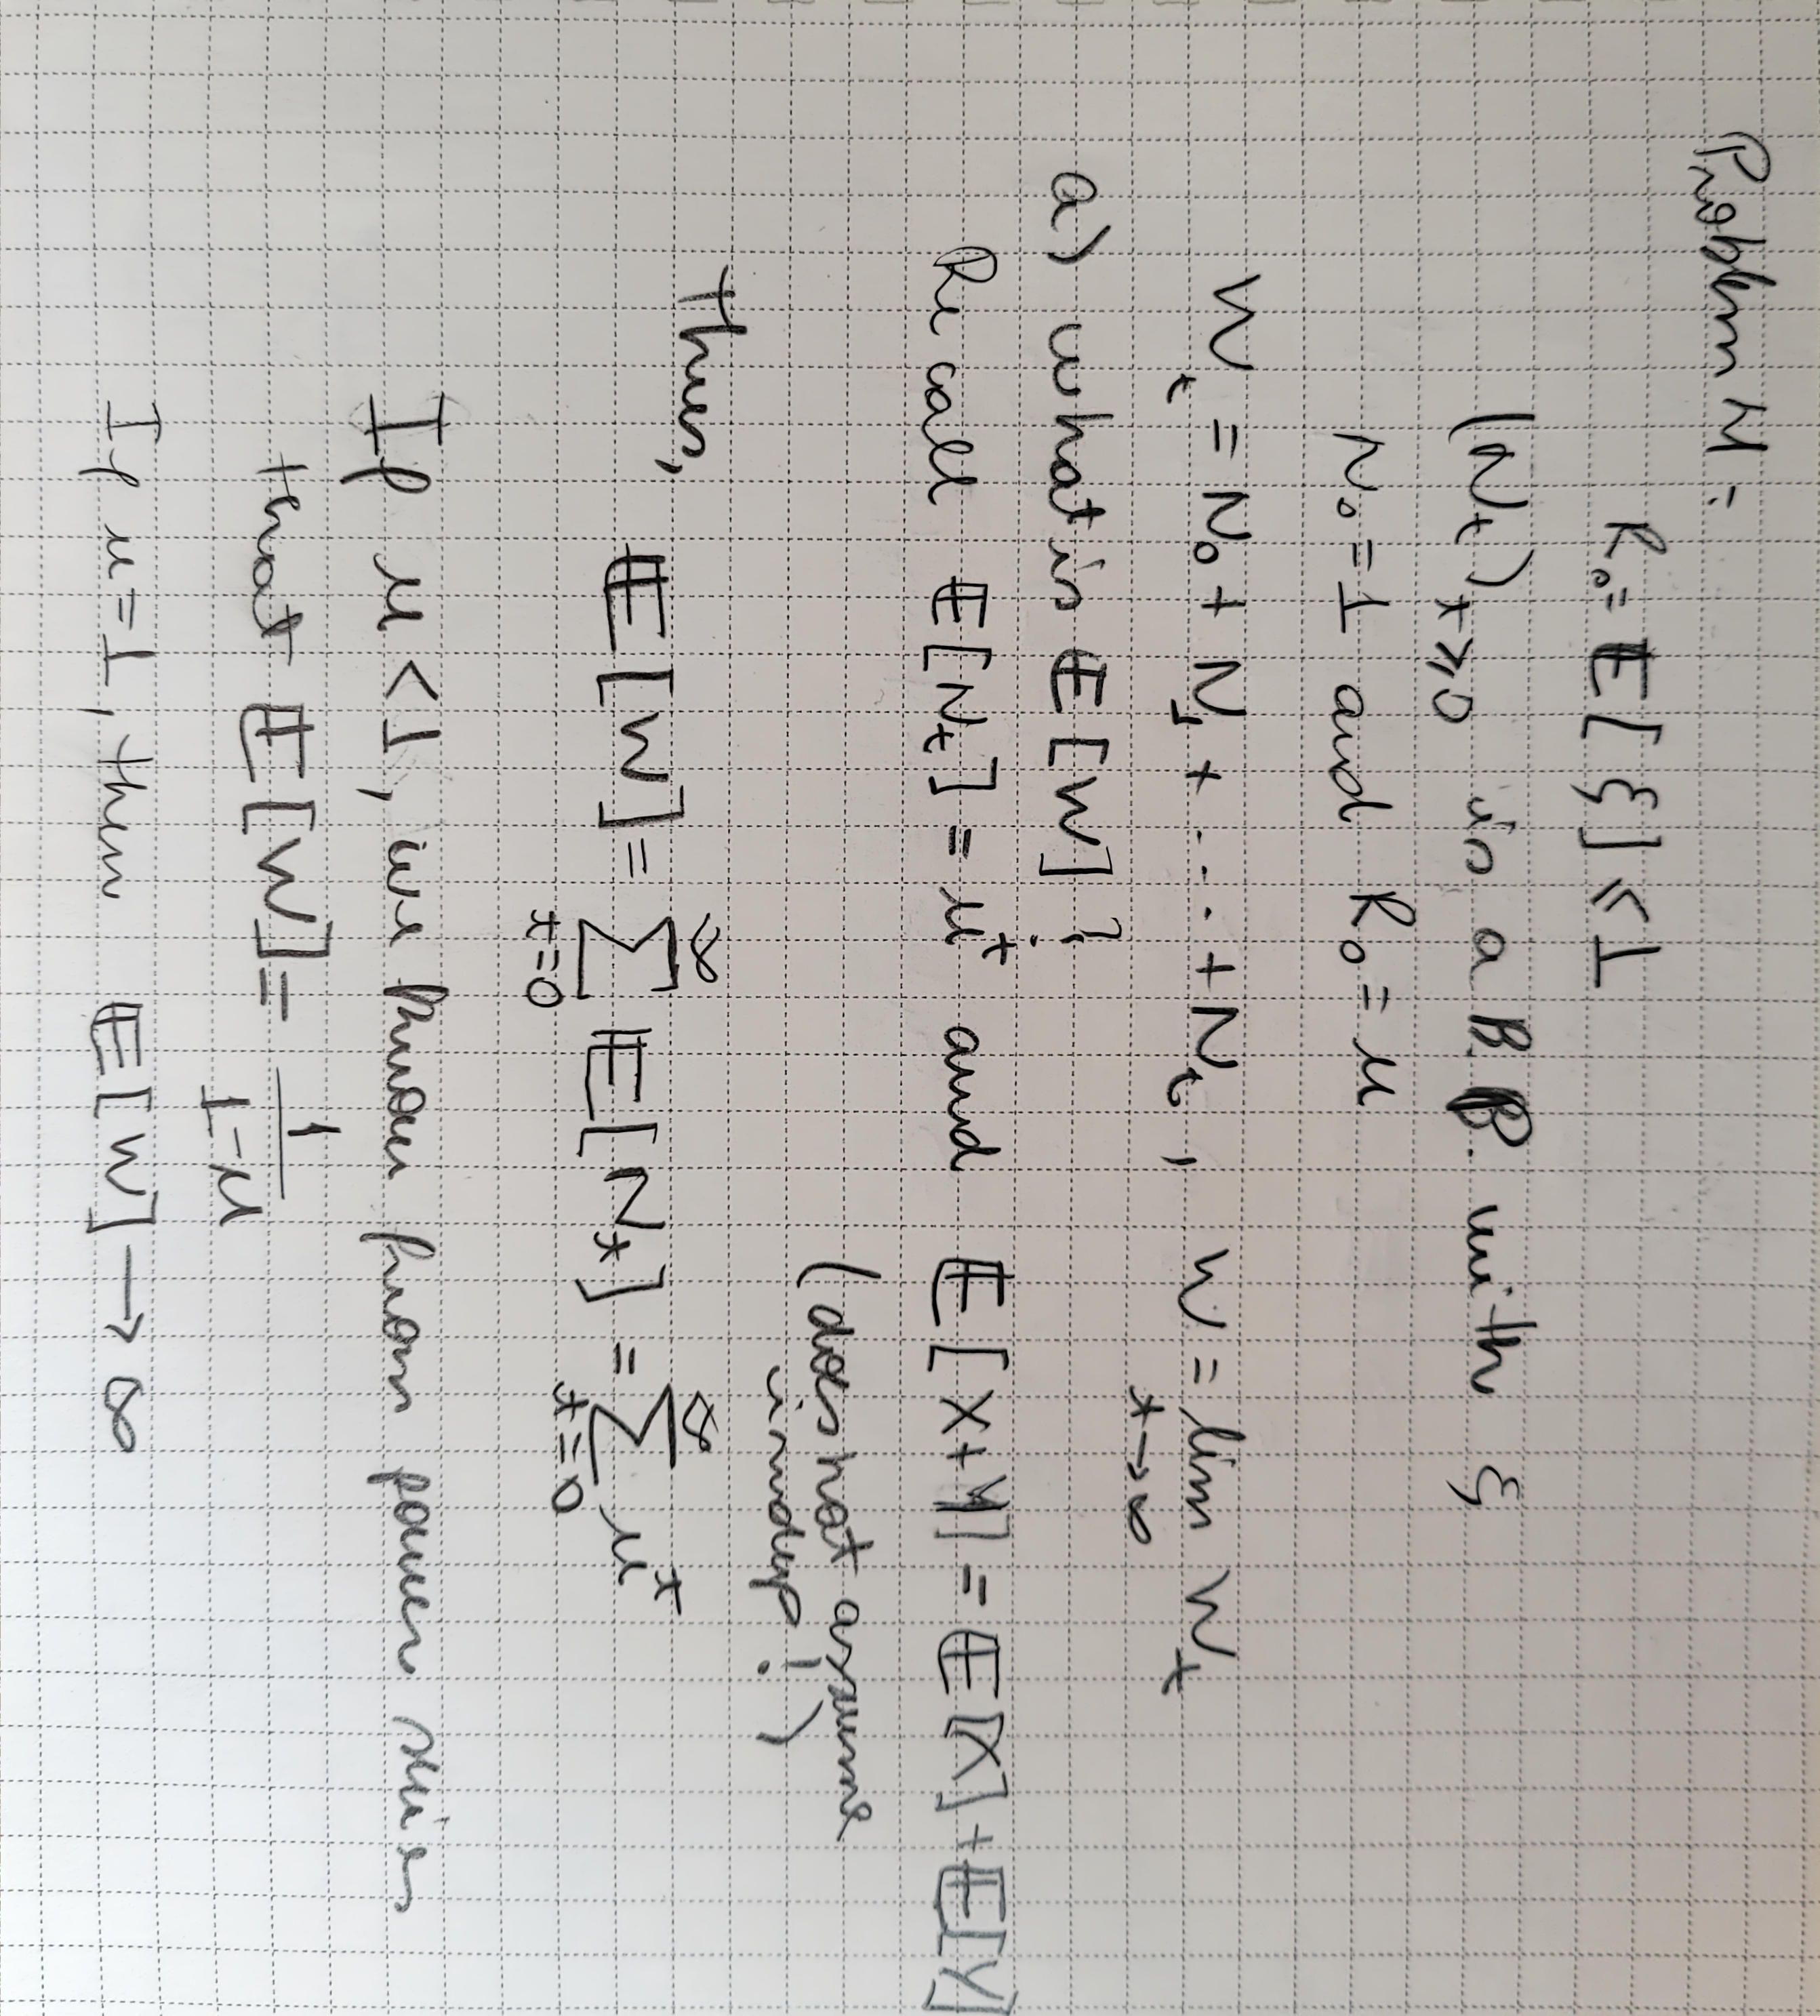 Problem 4:
R₀ = 𝔼[ξ] ≤ 1
(Nₜ)ₜ≥₀ is a B.P. with ξ
N₀ = 1 and R₀ = μ
Wₜ = N₀ + N₁ + ---- + Nₜ, W = lim Wₜ
t→∞
a) what is 𝔼[W]?
Recall 𝔼[Nₜ] = μᵗ and 𝔼[X+Y] = 𝔼[X]+𝔼[Y]
(does not assume
indep!)
Thus,
𝔼[W] = ∑_{t=0}^{∞} 𝔼[Nₜ] = ∑_{t=0}^{∞} μᵗ
If μ < 1, we know from power series
that 𝔼[W] = \frac{1}{1-μ}
If μ = 1, then 𝔼[W] → ∞